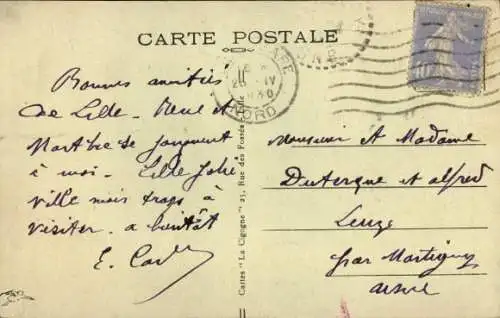 CARTE POSTALE
GARE
IV
NORD
Bonnes amitiés
de Lille. René et
Marthe se joignent
à moi. Lille Jolie
ville mais trop à
visiter. a bientôt
E.
Cartes "La Cigogne" 21, Rue des Fossés Lille
Monsieur et Madame
Duterque et alfred
Leuze
par Martigny
aisne